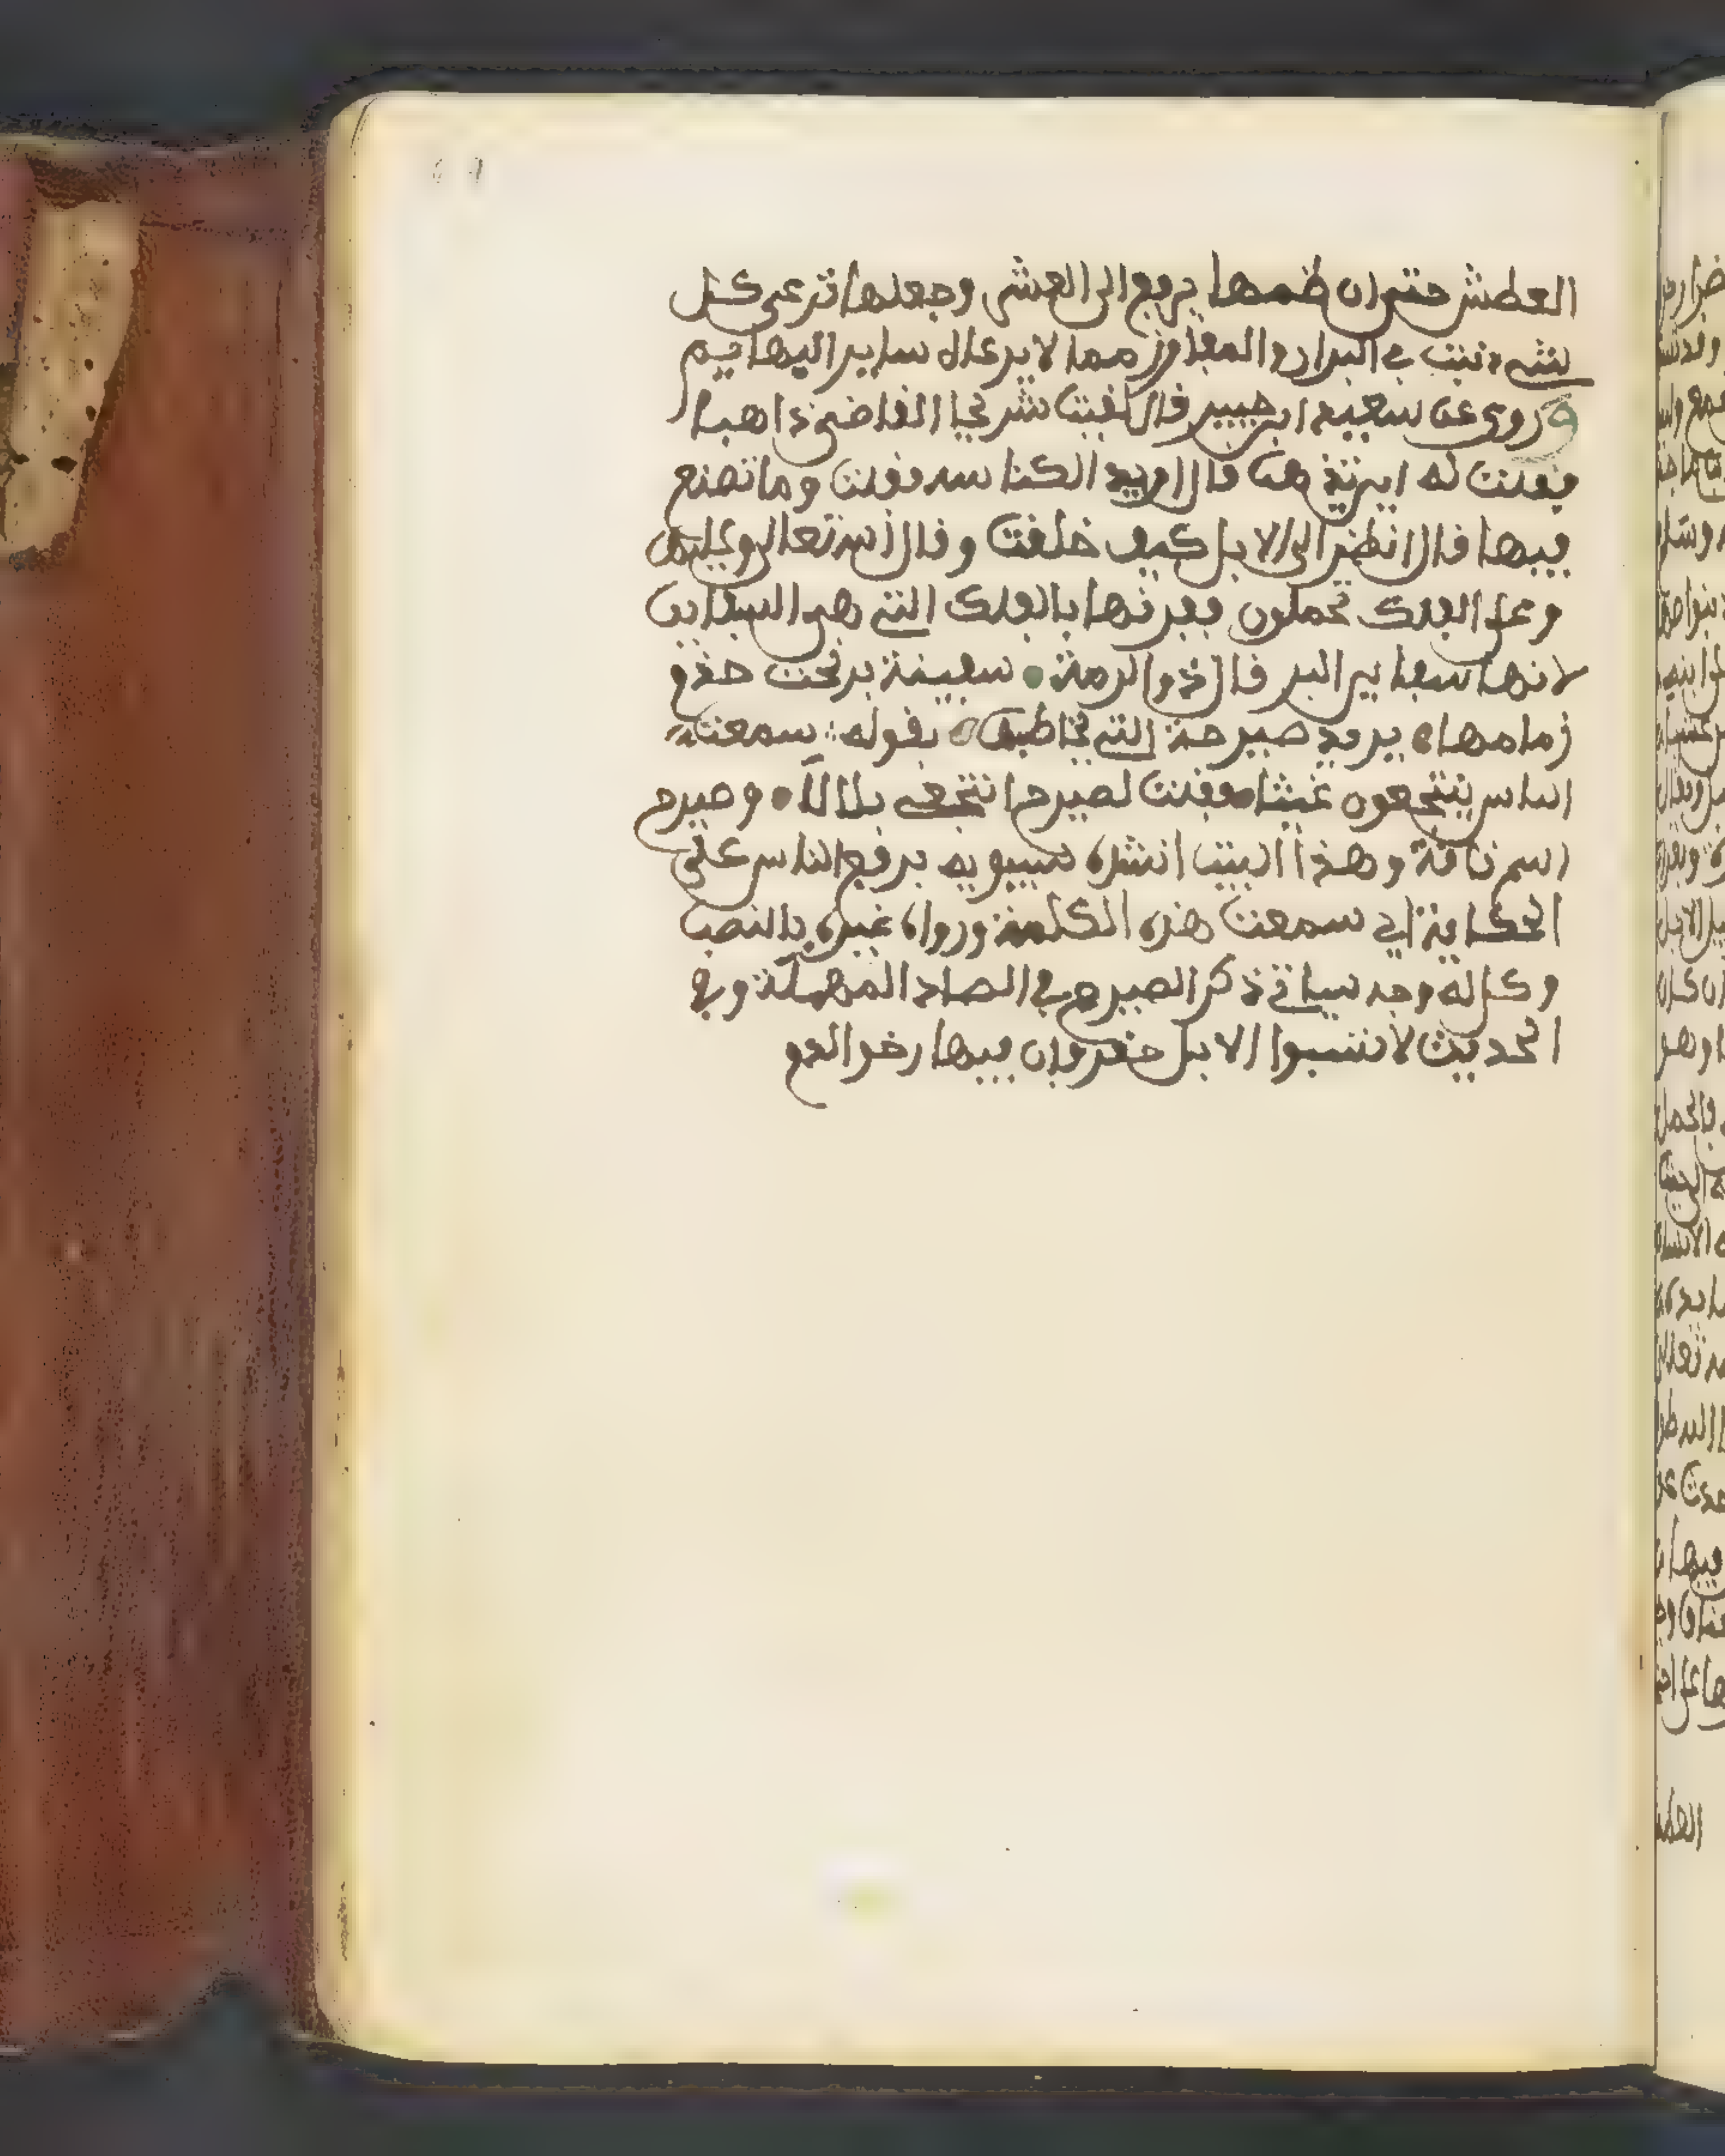 العطش حتى ان ظمها يرفع الى العشر وجعلها ترعى كل
شىء نبت في البرارى والمفاوز مما لا يرعاه ساير البهايم
وروى عن سعيد ابن جبير قال لقيت شريحا القاضى ذاهبا
فقلت له اين تذهب قال اريد الكناسه فقلت وما تصنع
فيها قال انظر الى الابل كيف خلقت وقال الله تعالى وعليها
وعلى الفلك تحملون فقرنها بالفلك التي هى السفاين
لانها سفاين البر قال ذو الرمة سفينة بر تحت خدى
زمامها يريد صيدح التي يخاطبها بقوله سمعت
الناس ينتجعون غيثا فقلت لصيدح انتجعى بلالا وصيدح
اسم ناقة وهذا البيت انشده سيبويه برفع الناس على
الحكاية اي سمعت هذه الكلمة ورواه غيره بالنصب
وكل له وجه سياتي ذكر الصيدح في الصاد المهملة وفي
الحديث لا تسبوا الابل فان فيها رقو الدم
العطش